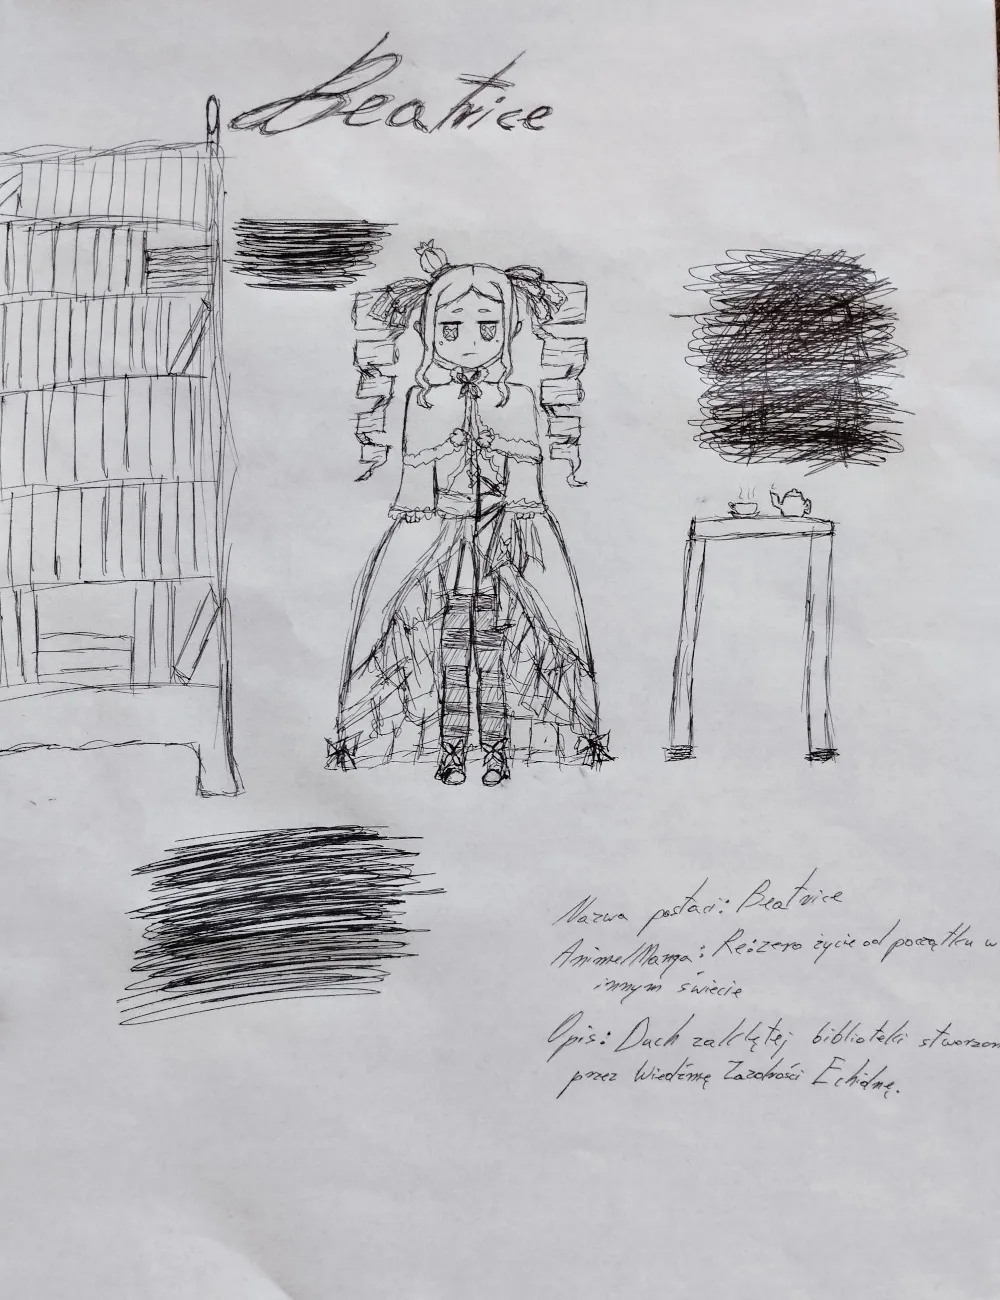 Beatrice
Nazwa postaci: Beatrice
Anime/Manga: Re:zero życie od początku w
innym świecie
Opis: Duch zaklętej biblioteki stworzon
przez Wiedźmę Zazdrości Echidnę.